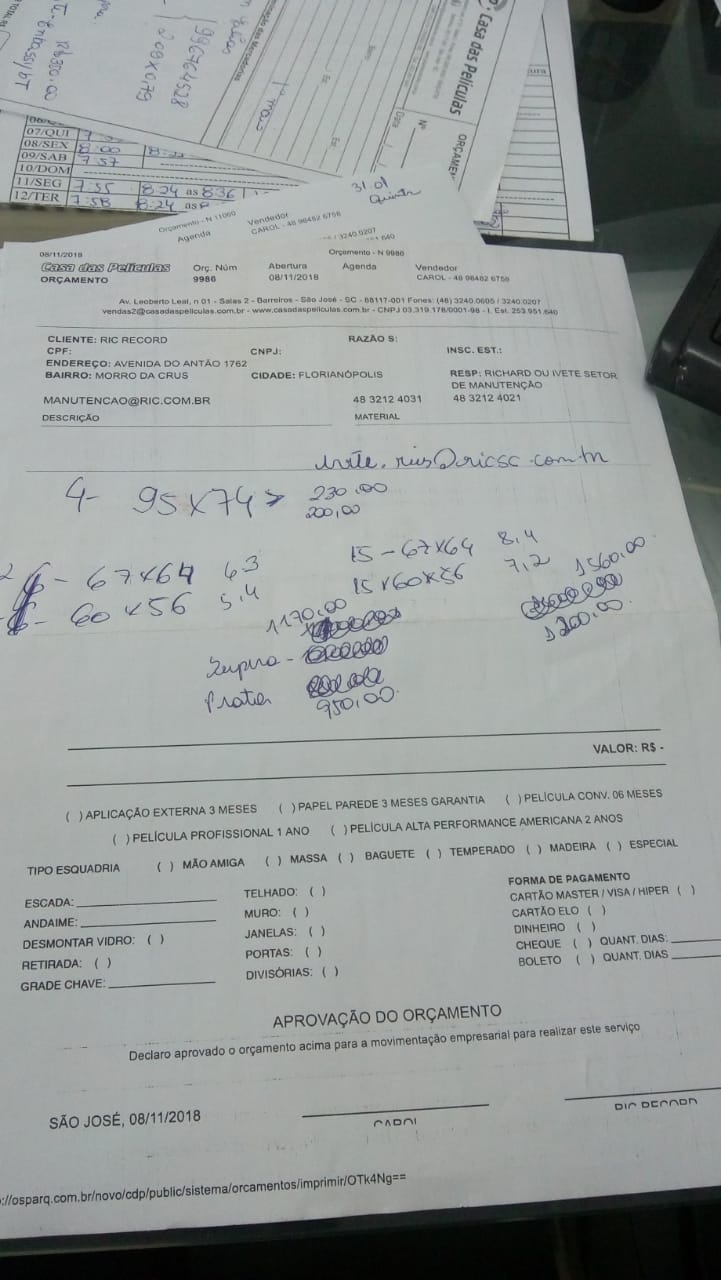 Casa das Películas
ORÇAMEN
Nº
Data
1º mais
996764528
208x0,79
12x300,00
07/QUI
08/SEX 8:00
09/SAB 7:57
10/DOM
11/SEG 7:55 8:24 as 8:36
12/TER 7:58 8:24 as
31.01
Orçamento - N 11060
Agenda
Vendedor
CAROL - 48 98462 6758
/ 3240.0207
640
08/11/2018
Orçamento - N 9986
Casa das Películas Orç. Núm Abertura Agenda Vendedor
ORÇAMENTO 9986 08/11/2018 CAROL - 48 98462 6758
Av. Leoberto Leal, n 01 - Salas 2 - Barreiros - São José - SC - 88117-001 Fones: (48) 3240.0605 / 3240.0207
vendas2@casadaspeliculas.com.br - www.casadaspeliculas.com.br - CNPJ 03.319.178/0001-98 - I. Est. 253.951.640
CLIENTE: RIC RECORD RAZÃO S:
CPF: CNPJ: INSC. EST.:
ENDEREÇO: AVENIDA DO ANTÃO 1762
BAIRRO: MORRO DA CRUS CIDADE: FLORIANÓPOLIS RESP: RICHARD OU IVETE SETOR
DE MANUTENÇÃO
MANUTENCAO@RIC.COM.BR 48 3212 4031 48 3212 4021
DESCRIÇÃO MATERIAL
4- 95x74 > 230,00
200,00
67x64 15-67x64 8,4
60x56 5,4 15x60x56 7,2 1560,00
1170,00
1200,00
Prata
950,00
VALOR: R$ -
( ) APLICAÇÃO EXTERNA 3 MESES ( ) PAPEL PAREDE 3 MESES GARANTIA ( ) PELÍCULA CONV. 06 MESES
( ) PELÍCULA PROFISSIONAL 1 ANO ( ) PELÍCULA ALTA PERFORMANCE AMERICANA 2 ANOS
TIPO ESQUADRIA ( ) MÃO AMIGA ( ) MASSA ( ) BAGUETE ( ) TEMPERADO ( ) MADEIRA ( ) ESPECIAL
ESCADA: TELHADO: ( ) FORMA DE PAGAMENTO
ANDAIME: MURO: ( ) CARTÃO MASTER / VISA / HIPER ( )
DESMONTAR VIDRO: ( ) JANELAS: ( ) CARTÃO ELO ( )
RETIRADA: ( ) PORTAS: ( ) DINHEIRO ( )
GRADE CHAVE: DIVISÓRIAS: ( ) CHEQUE ( ) QUANT. DIAS:
BOLETO ( ) QUANT. DIAS
APROVAÇÃO DO ORÇAMENTO
Declaro aprovado o orçamento acima para a movimentação empresarial para realizar este serviço
SÃO JOSÉ, 08/11/2018
CAROL
RIC RECORD
://osparq.com.br/novo/cdp/public/sistema/orcamentos/imprimir/OTk4Ng==